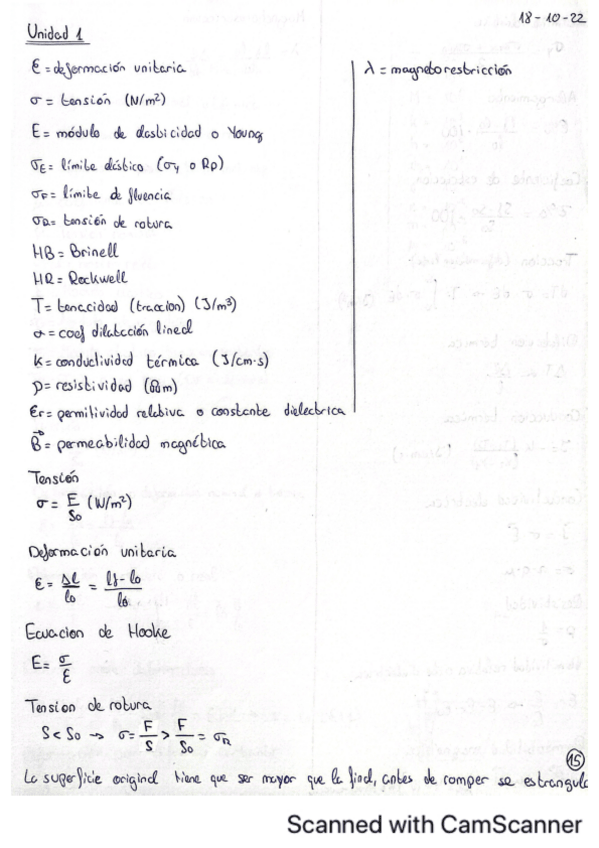 18-10-22
Unidad 1
Ɛ = deformación unitaria
σ = tensión (N/m²)
E = módulo de elasticidad o Young
σE = límite elástico (σy o Rp)
σF = límite de fluencia
σR = tensión de rotura
HB = Brinell
HR = Rockwell
T = tenacidad (traccion) (J/m³)
α = coef dilatación lineal
k = conductividad térmica (J/cm·s)
ρ = resistividad (Ωm)
Ɛr = permitividad relativa o constante dielectrica
B⃗ = permeabilidad magnética
λ = magnetorestricción
Tensión
σ = F/So (N/m²)
Deformación unitaria
Ɛ = Δl/lo = lf - lo/lo
Ecuacion de Hooke
E = σ/Ɛ
Tension de rotura
S < So → σ = F/S > F/So = σR
La superficie original tiene que ser mayor que la final, antes de romper se estrangula
15
Scanned with CamScanner